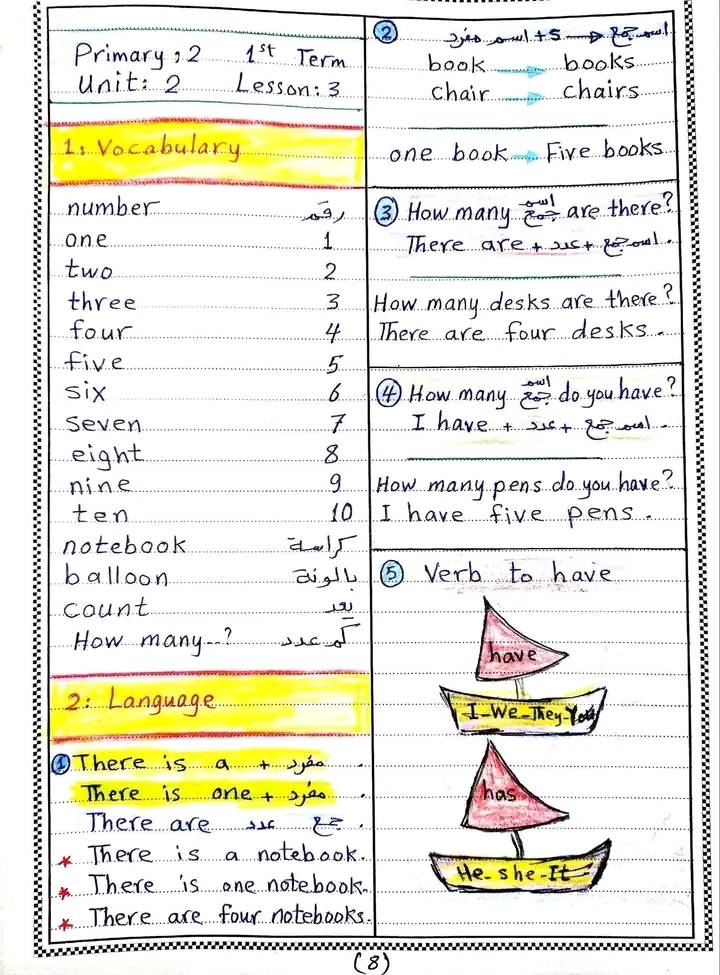 Primary : 2 1st Term
Unit: 2 Lesson: 3
1: Vocabulary
number رقم
one 1
two 2
three 3
four 4
five 5
six 6
seven 7
eight 8
nine 9
ten 10
notebook كراسة
balloon بالونة
count يعد
How many--? كم عدد
2: Language
① There is a + مفرد .
There is one + مفرد .
There are عدد جمع .
* There is a notebook.
* There is one notebook.
* There are four notebooks.
② اسم جمع ⇐ s + اسم مفرد
book → books
chair → chairs
one book → Five books
③ How many اسم جمع are there?
There are + عدد + اسم جمع .
How many desks are there?
There are four desks.
④ How many اسم جمع do you have?
I have + عدد + اسم جمع .
How many pens do you have?
I have five pens.
⑤ Verb to have
have
I-We-They-You
has
He-she-It
(8)